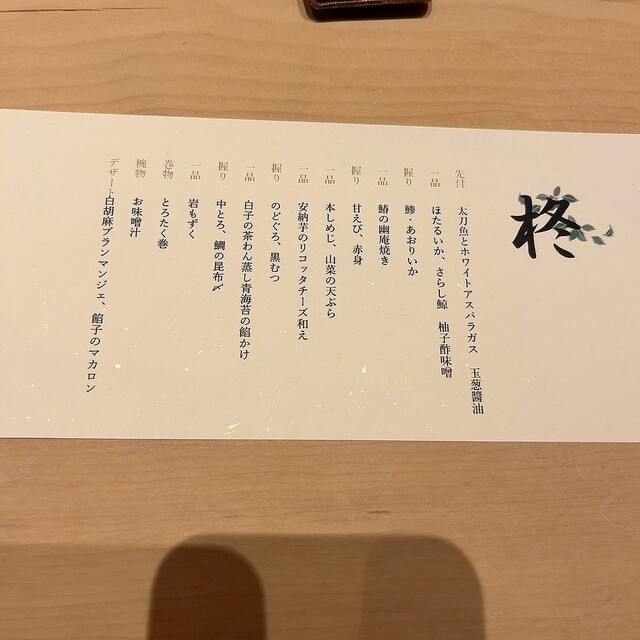 柊
先付 太刀魚とホワイトアスパラガス 玉葱醬油
一品 ほたるいか、さらし鯨 柚子酢味噌
握り 鯵・あおりいか
一品 鰆の幽庵焼き
握り 甘えび、赤身
一品 本しめじ、山菜の天ぷら
一品 安納芋のリコッタチーズ和え
握り のどぐろ、黒むつ
一品 白子の茶わん蒸し青海苔の餡かけ
握り 中とろ、鯛の昆布〆
一品 岩もずく
巻物 とろたく巻
椀物 お味噌汁
デザート 白胡麻ブランマンジェ、餡子のマカロン